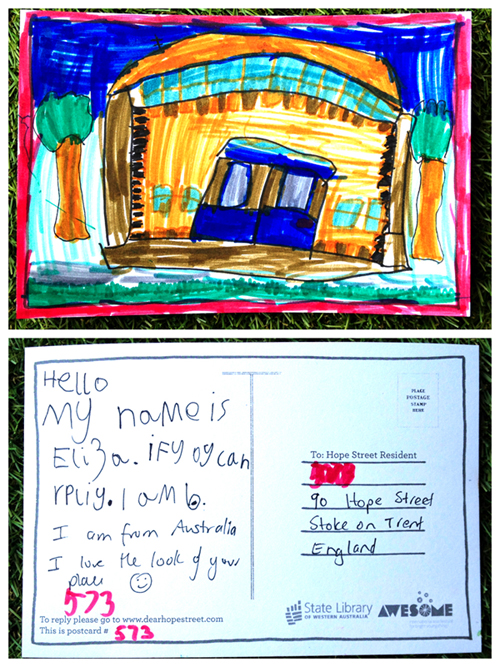 Hello
My name is
Eliza. iFy oy can
rpliy. I aM 6.
I am from Australia
I love the look of your
place
573
To reply please go to www.dearhopestreet.com
This is postcard # 573
PLACE
POSTAGE
STAMP
HERE
To: Hope Street Resident
90 Hope Street
Stoke on Trent
England
State Library
OF WESTERN AUSTRALIA
AWESOME